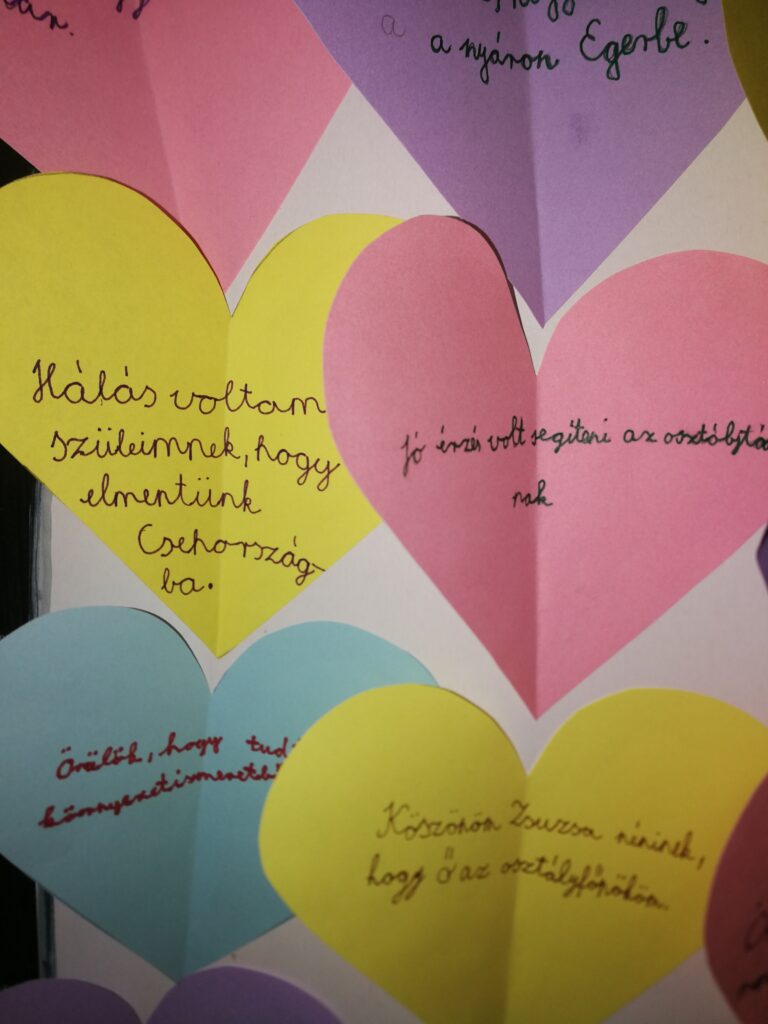 a
a nyáron Egerbe.
Hálás voltam
szüleimnek, hogy
elmentünk
Csehország-
ba.
jó érzés volt segíteni az
nak
Örülök, hogy
Köszönöm Zsuzsa néninek,
hogy ő az osztályfőnököm.